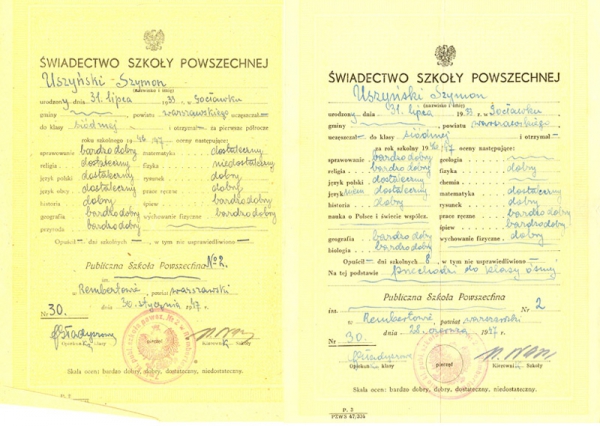 ŚWIADECTWO SZKOŁY POWSZECHNEJ
Uszyński Szymon
(nazwisko i imię)
urodzony dnia 31 lipca 1933 r. w Gocławku
gminy powiatu warszawskiego uczęszczał
do klasy siódmej i otrzymał za pierwsze półrocze
roku szkolnego 1946/47 oceny następujące:
sprawowanie bardro dobry dostateczny
religia dostateczny fizyka niedostateczny
język polski dostateczny rysunek dobry
język obcy dostateczny matematyka dostateczny
historia dobry dobry
geografia bardro dobry wychowanie fizyczne dobry
przyroda bardro dobry
Opuścił — dni szkolnych —, w tym nie usprawiedliwiono —
Publiczna Szkoła Powszechna No 2.
w Rembertowie, powiat warszawski
dnia 30 stycznia 1947 r.
Nr 30.
Opiekun klasy
pieczęć
Kierownik Szkoły
Skala ocen: bardzo dobry, dobry, dostateczny, niedostateczny.
ŚWIADECTWO SZKOŁY POWSZECHNEJ
Uszyński Szymon
(nazwisko i imię)
urodzony dnia 31 lipca 1933 r. w Gocławku
gminy powiatu warszawskiego
uczęszczał do klasy siódmej i otrzymał
za rok szkolny 1946/47 oceny następujące:
sprawowanie bardro dobry geologia dobry
religia bardro dobry fizyka dobry
język polski dostateczny chemia
język dostateczny matematyka dostateczny
historia dobry rysunek dobry
nauka o Polsce i świecie współcz. prace ręczne bardro dobry
śpiew bardro dobry
geografia bardro dobry wychowanie fizyczne dobry
biologia bardro dobry
Opuścił — dni szkolnych 8, w tym nie usprawiedliwiono —
Na tej podstawie przechodzi do klasy ósmej
Publiczna Szkoła Powszechna
im. Nr 2
w Rembertowie, powiat warszawski
dnia 28 czerwca 1947 r.
Nr 30.
Opiekun klasy
pieczęć
Kierownik Szkoły
Skala ocen: bardzo dobry, dobry, dostateczny, niedostateczny.
P. 3
PZWS 47,316